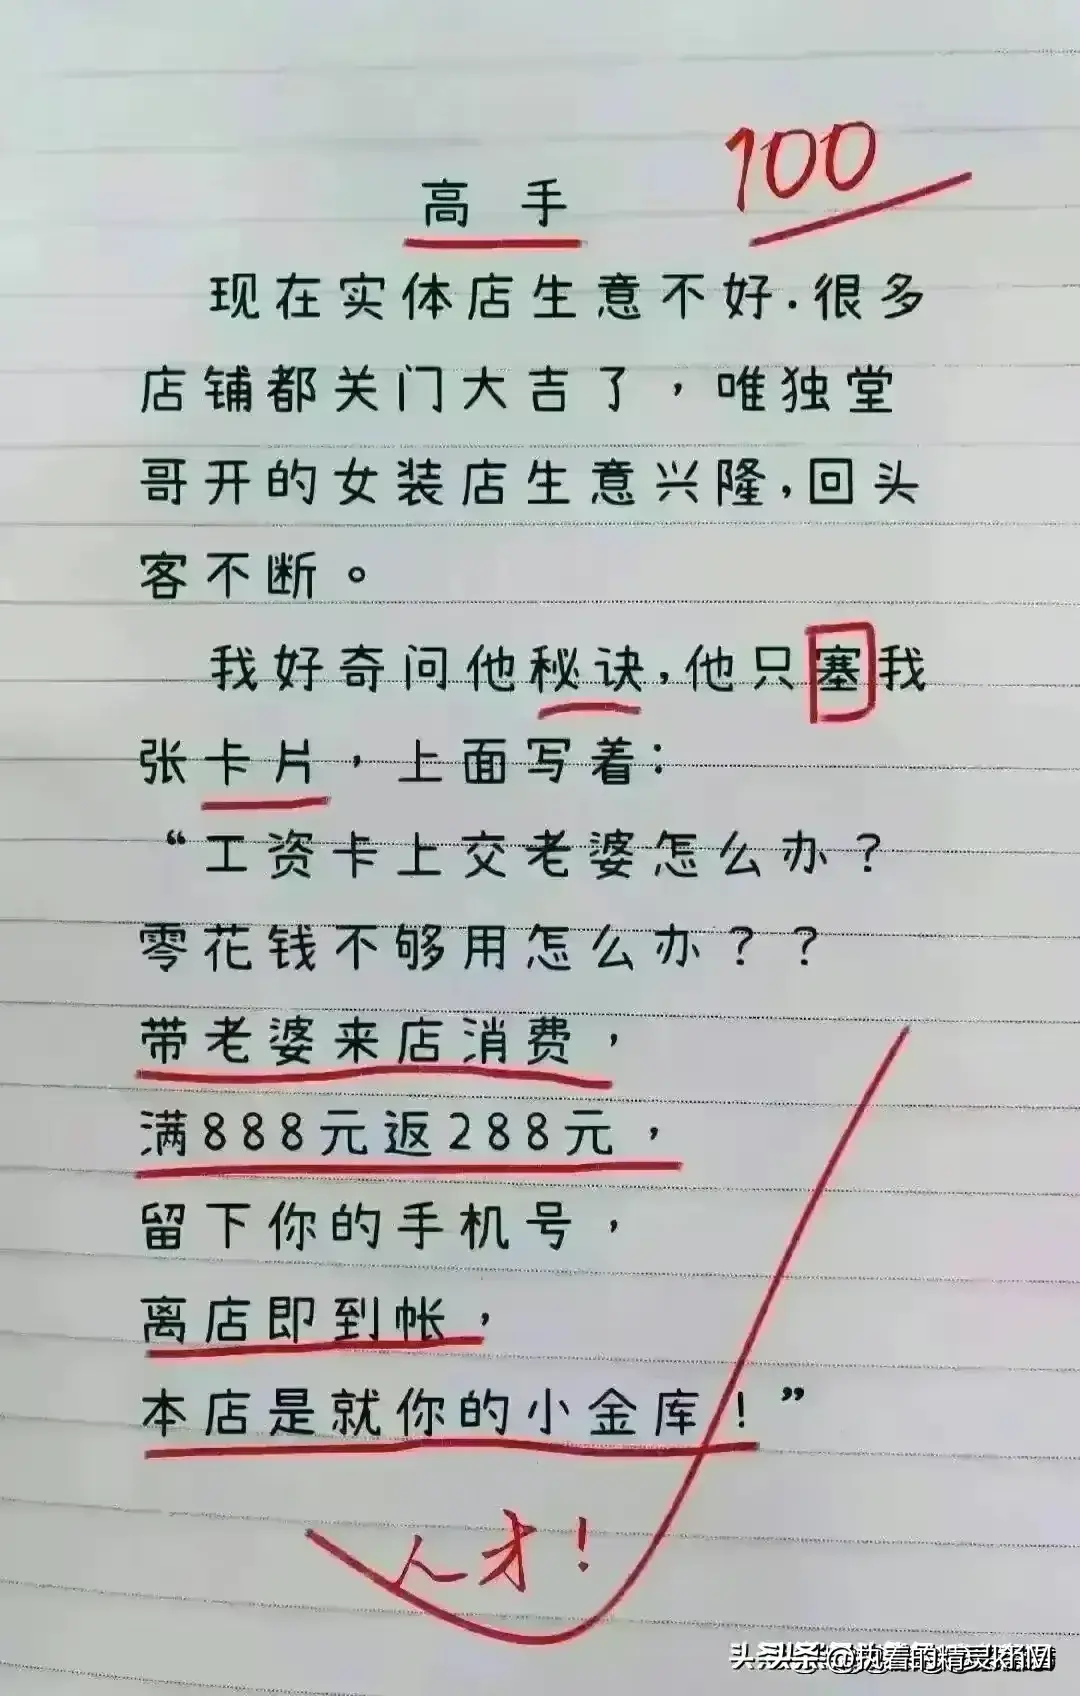 100
高手
现在实体店生意不好.很多
店铺都关门大吉了，唯独堂
哥开的女装店生意兴隆,回头
客不断。
我好奇问他秘诀,他只塞我
张卡片，上面写着:
“工资卡上交老婆怎么办？
零花钱不够用怎么办？？
带老婆来店消费，
满888元返288元，
留下你的手机号，
离店即到帐，
本店是就你的小金库！”
人才！
头条 @执着的精灵